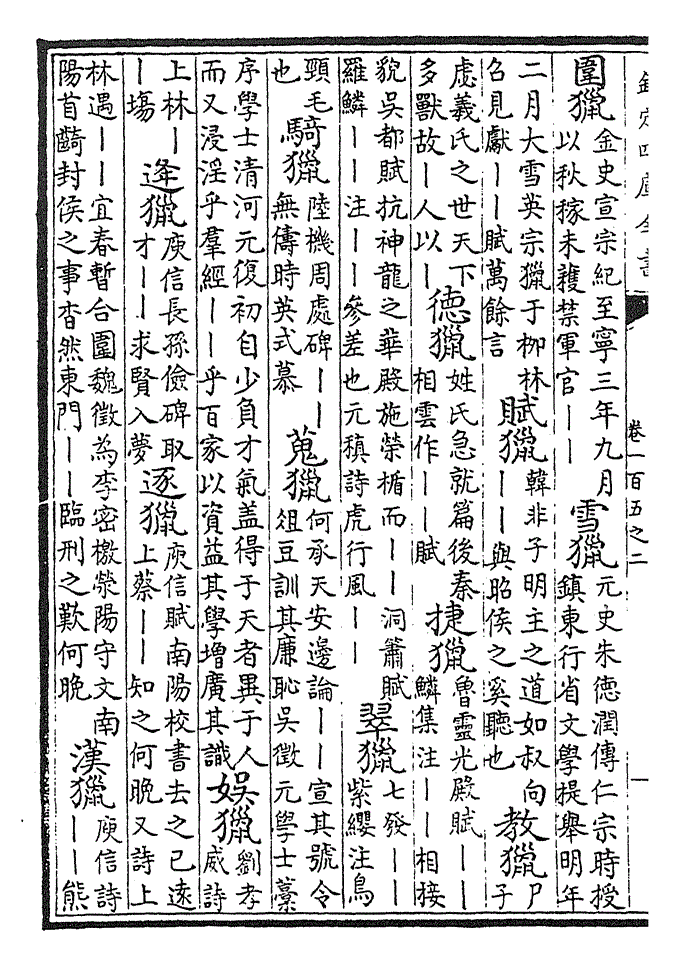 欽定四庫全書
卷一百五之二
一
圍獵
金史宣宗紀至寧三年九月
以秋稼未穫禁軍官——
雪獵
元史朱德潤傳仁宗時授
鎮東行省文學提舉明年
二月大雪英宗獵于栁林
召見獻——賦萬餘言
賦獵
韓非子明主之道如叔向
——與昭侯之奚聽也
教獵
尸
子
虙羲氏之世天下
多獸故—人以—
德獵
姓氏急就篇後秦
相雲作——賦
捷獵
魯靈光殿賦——
鱗集注——相接
貌吳都賦抗神龍之華殿施榮楯而——洞簫賦
羅鱗——注——參差也元稹詩虎行風——
翠獵
七發——
紫纓注鳥
頸毛
也
騎獵
陸機周處碑——
無儔時英式慕
蒐獵
何承天安邊論——宣其號令
俎豆訓其廉恥吳徵元學士藁
序學士清河元復初自少負才氣盖得于天者異于人
而又浸淫乎羣經——乎百家以資益其學增廣其識
娛獵
劉孝
威詩
上林—
—塲
逢獵
庾信長孫儉碑取
才——求賢入夢
逐獵
庾信賦南陽校書去之已逺
上蔡——知之何晚又詩上
林遇——宜春暫合圍魏徵為李密檄滎陽守文南
陽首齮封侯之事杳然東門——臨刑之歎何晚
漢獵
庾信詩
——熊